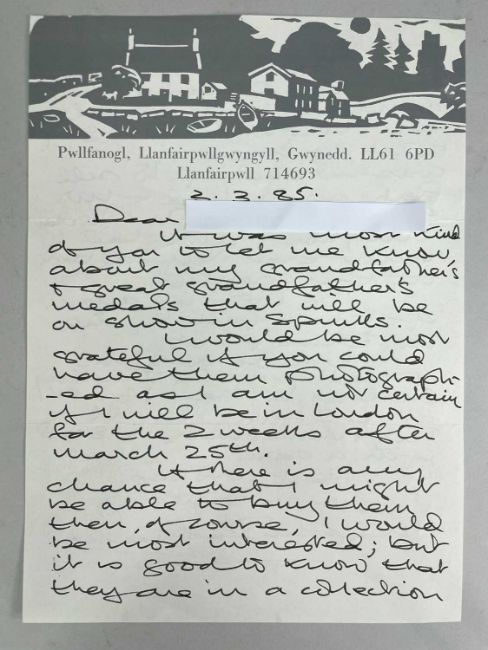 Pwllfanogl, Llanfairpwllgwyngyll, Gwynedd. LL61 6PD
Llanfairpwll 714693
2. 3. 85.
Dear
it was most kind
of you to let me know
about my grandfather's
& great grandfather's
medals that will be
on show in Spinks.
I would be most
grateful if you could
have them photograph-
-ed as I am not certain
if I will be in London
for the 2 weeks after
March 25th.
If there is any
chance that I might
be able to buy them
then, of course, I would
be most interested; but
it is good to know that
they are in a collection